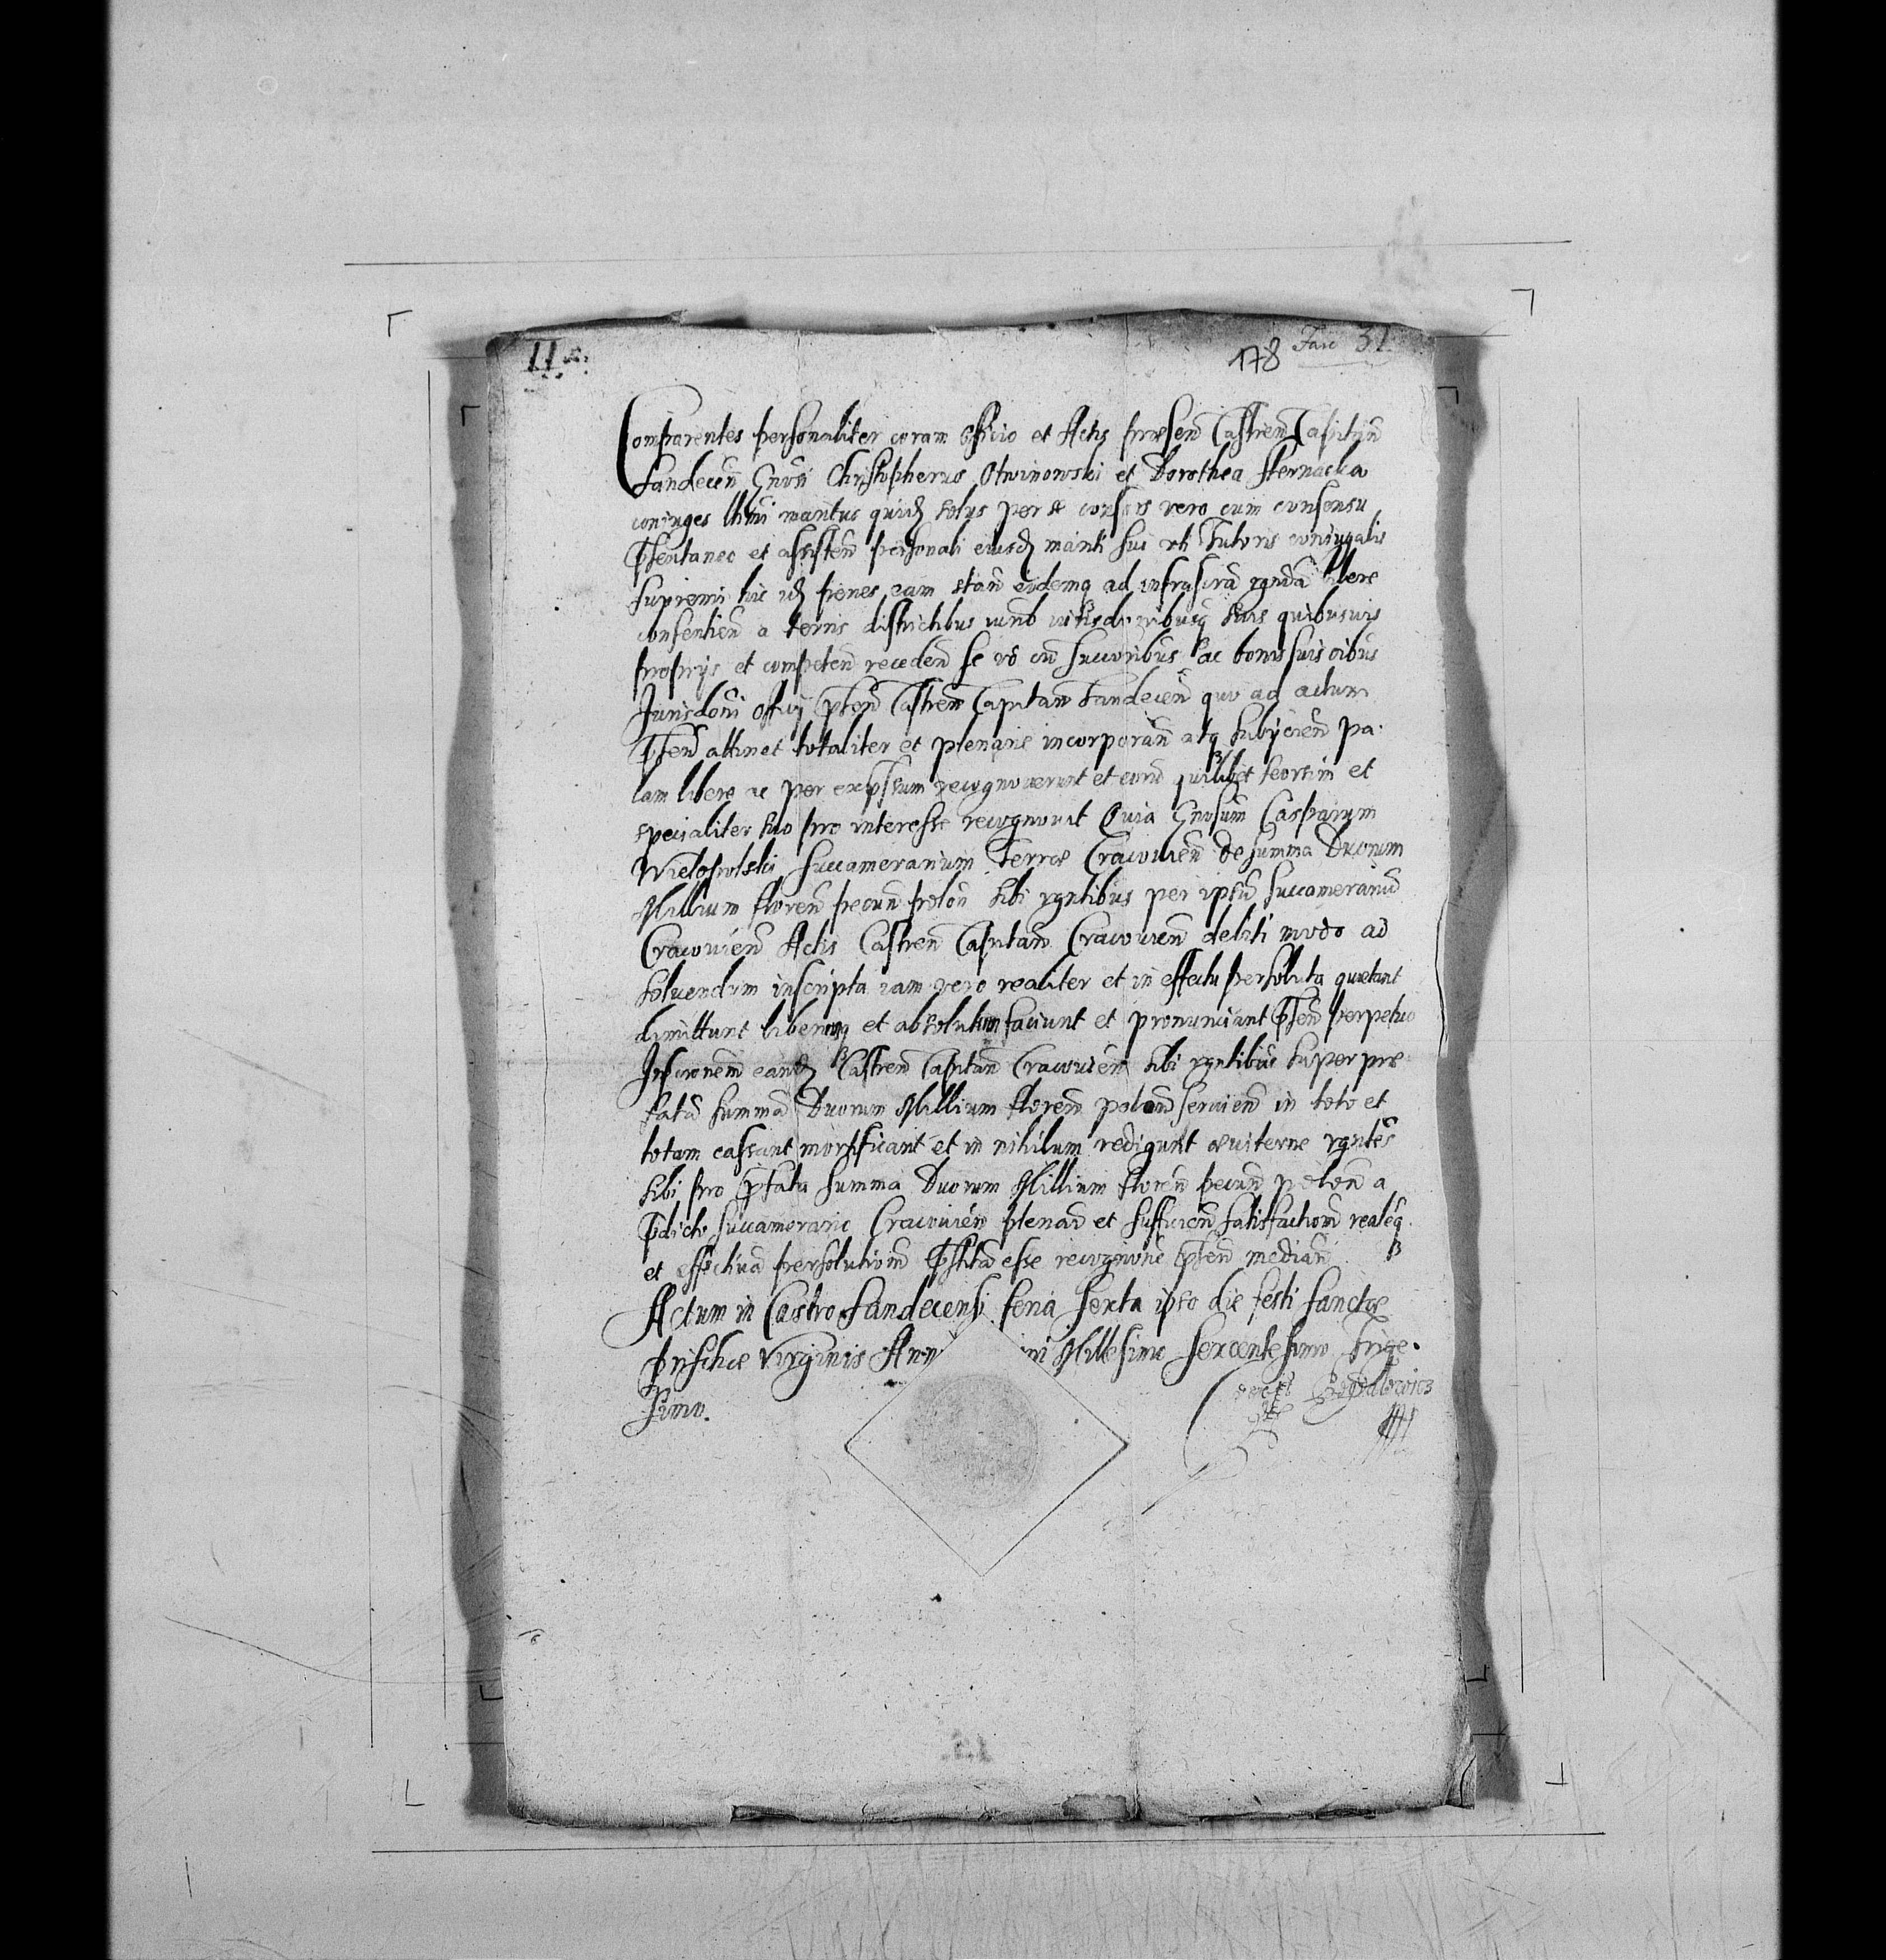 11
178 Fasc 31
Comparentes personaliter coram Officio et Actis præsen Castren Capitan
Sandecen Gnosi Christopherus Otwinowski et Dorothea Sternacka
coniuges lthmi maritus quidē solus per se consors vero cum consensu
pſentaneo et aſsiſten personali eiusdē mariti sui uti Tutoris coniugalis
supremi hic idē penes eam stan eidemq ad infraſcrā rgndā libere
consentien a terris diſtrictibus iurisd quibusuis
proprijs et competen receden se vō cū succoribus ac bonis suis oibus
Jurisdōni Offij pſen Caſtren Capitan Sandecen quo ad actum
pſen attinet totaliter et plenarie incorporan atq subijcien pa:
lam libere ac per expſsum recognoverunt et eorū quilibet seorsim et
specialiter suo pro interesse recognouit Quia Gnosum Casparum
Wielopolski Succamerarium Terræ Cracouien de summa Duorum
Millium floren pecun polon sibi rgntibus per ipsū Succamerariū
Cracouien Actis Caſtren Capitan Cracouien debiti modo ad
soluendum inscripta iam vero realiter et in effectu persoluta quietant
dimittunt liberumq et absolutum faciunt et pronunciant pſen perpetuo
Inſcronem eandē Caſtren Capitan Cracouien sibi rgntibus super præ
fatā summā Duorum Millium floren polon seruien in toto et
totam caſsant mortificant et in nihilum redigunt æuiterne rgntes
sibi pro pfata summa Duorum Millium floren pecun polon a
pdicto Succamerario Cracouien plenariā et sufficien satisfactionē realēq
et effectiuā persolutionē pſtitā esse recognitione pſen median
Actum in Castro Sandecensi feria sexta ipso die festi Sanctæ
Priſchæ Virginis Ann ini Millesimo Sexcentesimo Trige.
simo.